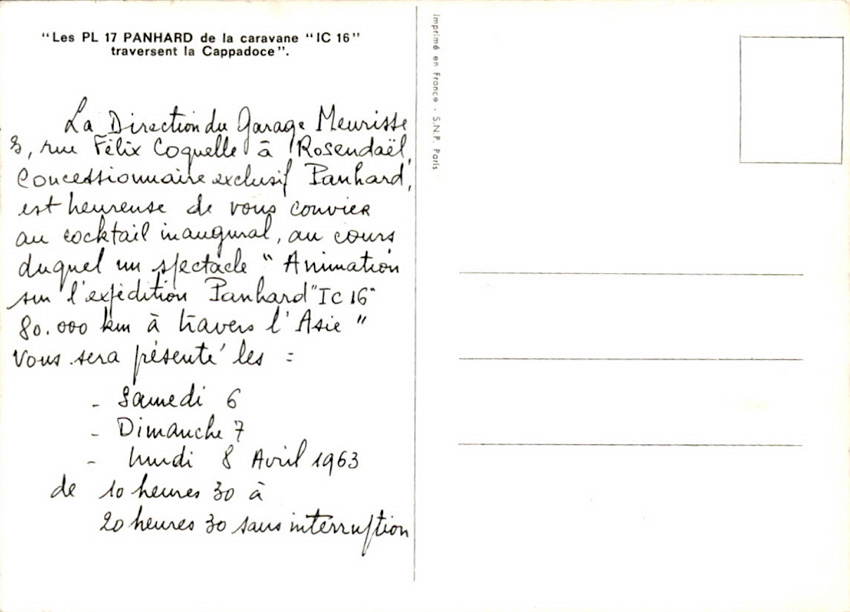 "Les PL 17 PANHARD de la caravane "IC 16"
traversent la Cappadoce".
La Direction du Garage Meurisse
3, rue Félix Coquelle à Rosendaël,
Concessionnaire exclusif Panhard,
est heureuse de vous convier
au cocktail inaugural, au cours
duquel un spectacle " Animation
sur l'expédition Panhard "IC 16"
80.000 km à travers l'Asie "
vous sera présenté les :
- Samedi 6
- Dimanche 7
- lundi 8 Avril 1963
de 10 heures 30 à
20 heures 30 sans interruption
Imprimé en France - S.N.P. Paris